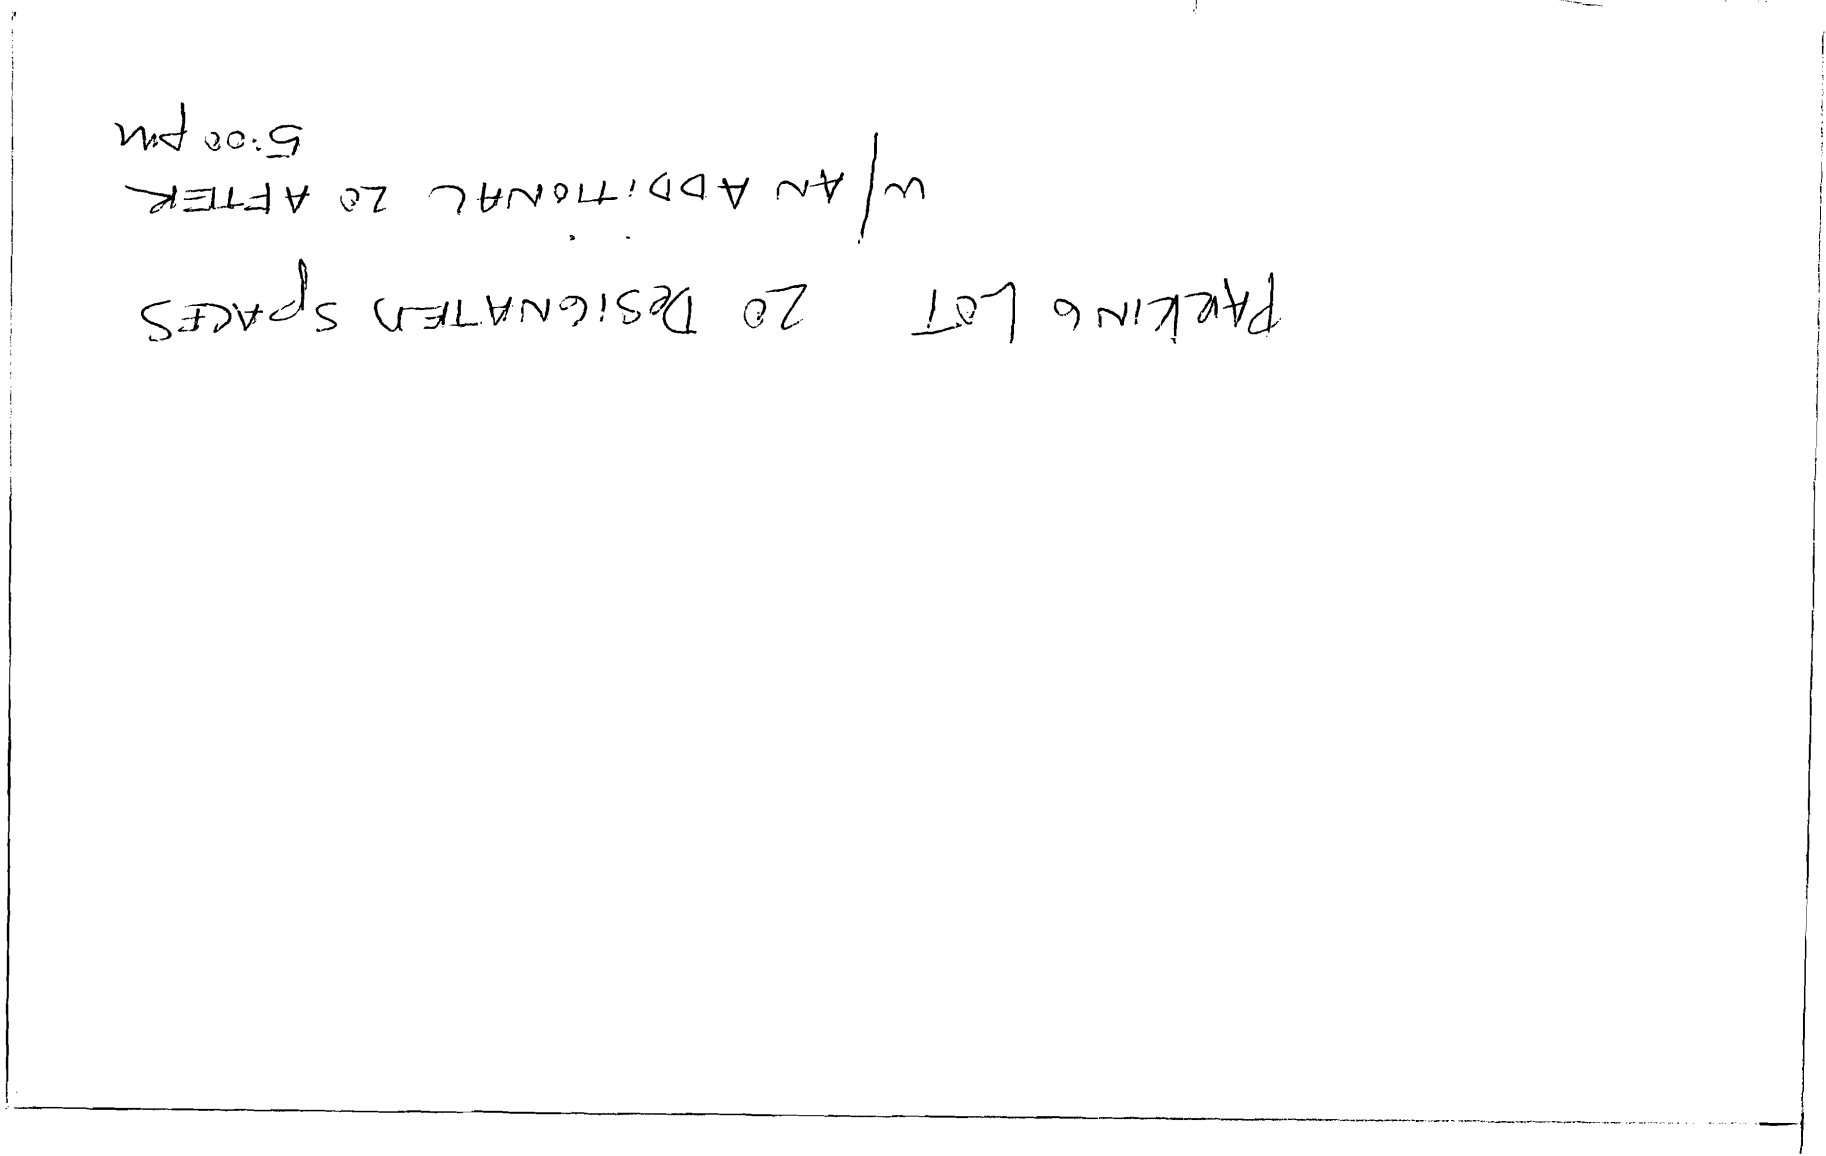 PARKING LOT 20 DESIGNATED SPACES
W/ AN ADDITIONAL 20 AFTER
5:00 pm